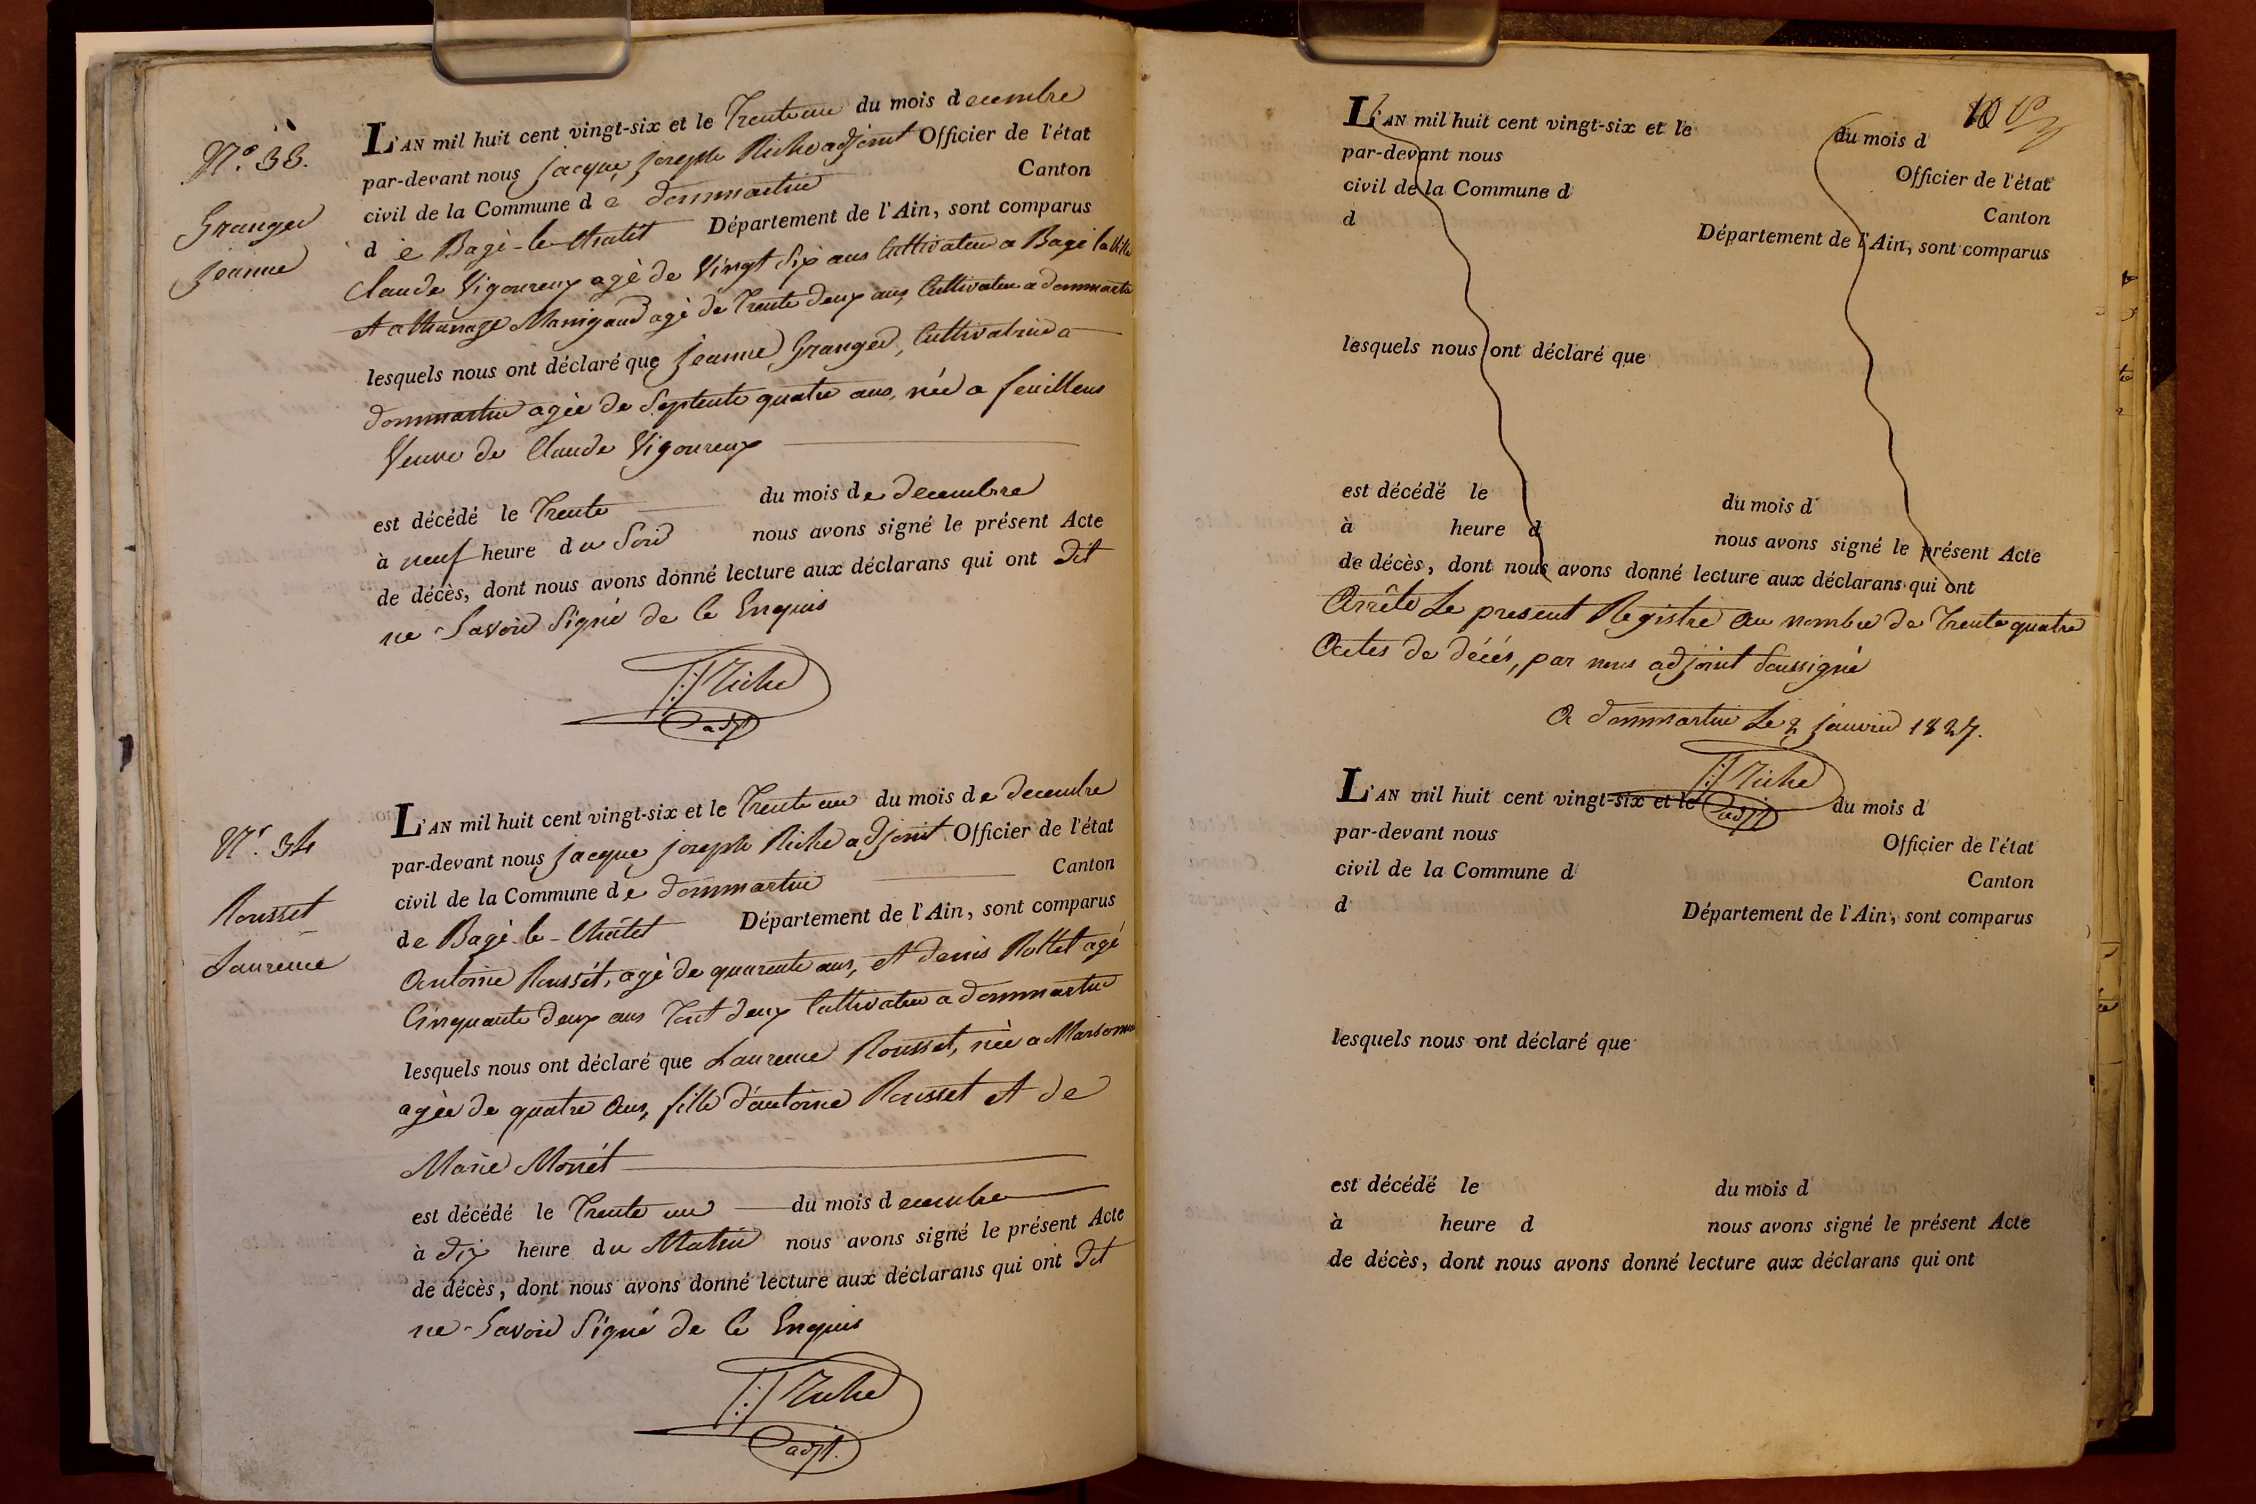 N.º 33.
Granger
jeanne
L'AN mil huit cent vingt-six et le Trente un du mois decembre
par-devant nous jacque joseph Riche adjoint Officier de l'état
civil de la Commune de dommartin Canton
de Bagé-le-Chatel Département de l'Ain, sont comparus
Claude Vigoureux agé de Vingt Six ans Cultivateur a Bagé la Ville
et Manigand agé de Trente deux ans Cultivateur a dommartin
lesquels nous ont déclaré que jeanne Granger, Cultivatrice a
dommartin agée de Septente quatre ans, née a feuillens
Veuve de Claude Vigoureux
est décédé le Trente du mois de decembre
à neuf heure du Soir nous avons signé le présent Acte
de décès, dont nous avons donné lecture aux déclarans qui ont dit
ne Savoir Signé de Ce Enquis
J: J Riche
adjt
N.º 34
Rousset
Laurence
L'AN mil huit cent vingt-six et le Trente un du mois de decembre
par-devant nous jacque joseph Riche adjoint Officier de l'état
civil de la Commune de dommartin Canton
de Bagé-le-Châtel Département de l'Ain, sont comparus
Antoine Rousset, agé de quarente ans, et denis Rollet agé
Cinquante deux ans Tout deux Cultivateur a dommartin
lesquels nous ont déclaré que Laurence Rousset, née a Marsonnas
agée de quatre ans, fille d'antoine Rousset et de
Marie Monét
est décédé le Trente un du mois decembre
à dix heure du Matin nous avons signé le présent Acte
de décès, dont nous avons donné lecture aux déclarans qui ont dit
ne Savoir Signé de Ce Enquis
J: J Riche
adjt.
10
L'AN mil huit cent vingt-six et le du mois d
par-devant nous Officier de l'état
civil de la Commune d Canton
d Département de l'Ain, sont comparus
lesquels nous ont déclaré que
est décédé le du mois d
à heure d nous avons signé le présent Acte
de décès, dont nous avons donné lecture aux déclarans qui ont
Arrêté Le present Registre au nombre de Trente quatre
Actes de décés, par nous adjoint Soussigné
A dommartin Le 2 janvier 1827.
J: J Riche
adjt
L'AN mil huit cent vingt-six et le du mois d
par-devant nous Officier de l'état
civil de la Commune d Canton
d Département de l'Ain, sont comparus
lesquels nous ont déclaré que
est décédé le du mois d
à heure d nous avons signé le présent Acte
de décès, dont nous avons donné lecture aux déclarans qui ont